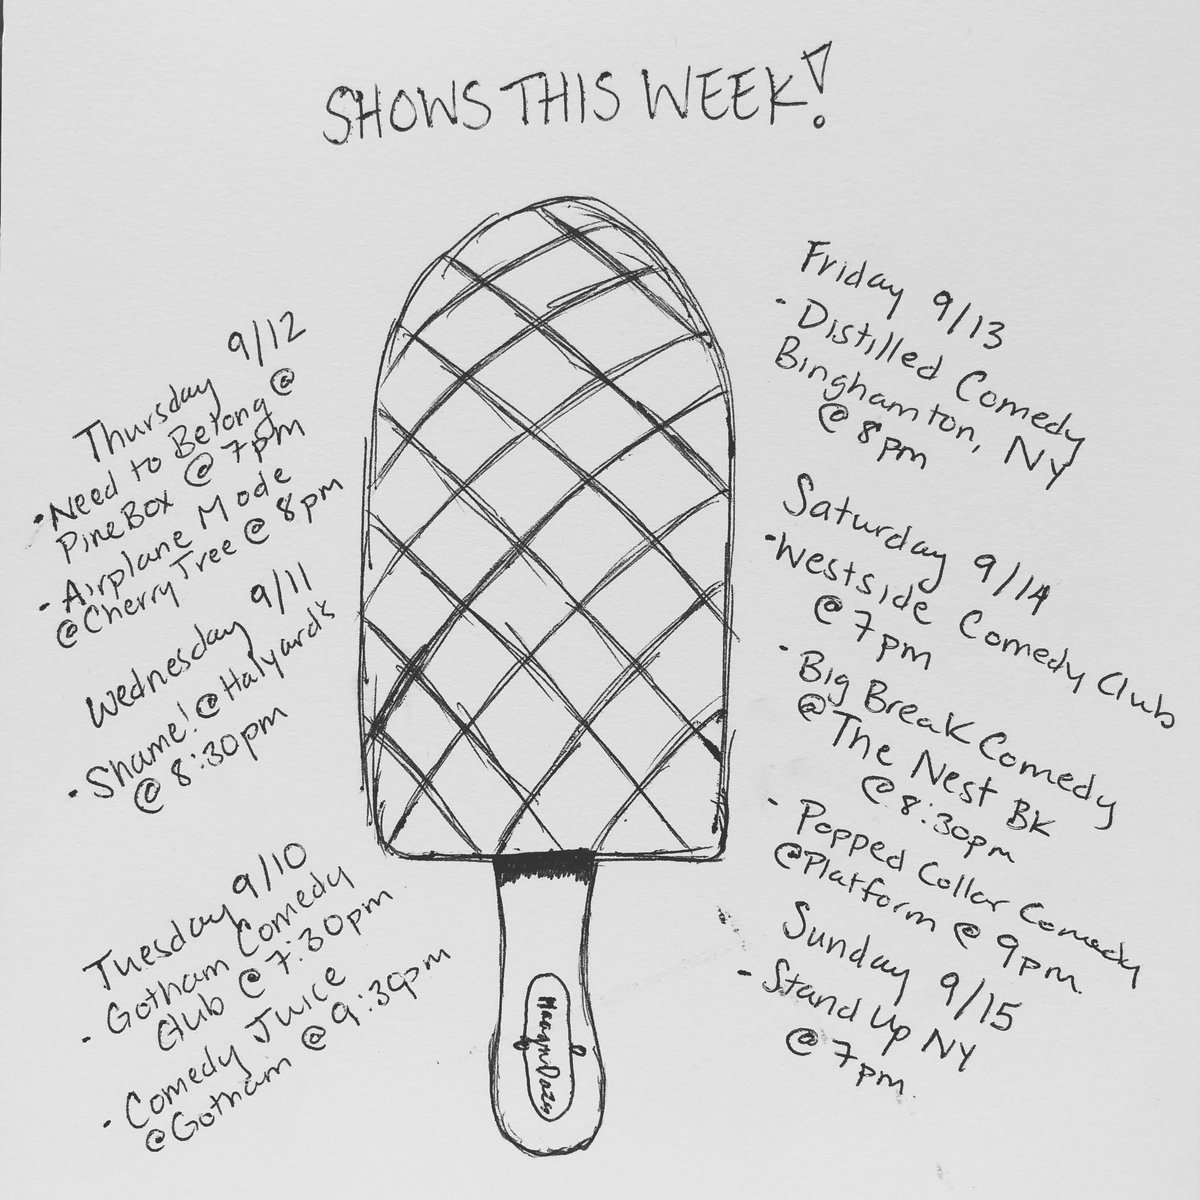 SHOWS THIS WEEK!
Thursday 9/12
• Need to Belong @
PineBox @ 7pm
• Airplane Mode
@CherryTree @ 8pm
Wednesday 9/11
• Shame! @Halyard's
@ 8:30pm
Tuesday 9/10
• Gotham Comedy
Club @ 7:30pm
• Comedy Juice
@Gotham @ 9:30pm
Friday 9/13
• Distilled Comedy
Binghamton, NY
@ 8pm
Saturday 9/14
• Westside Comedy Club
@ 7pm
• Big Break Comedy
@The Nest BK
@ 8:30pm
• Popped Collar Comedy
@Platform @ 9pm
Sunday 9/15
• Stand Up NY
@ 7pm